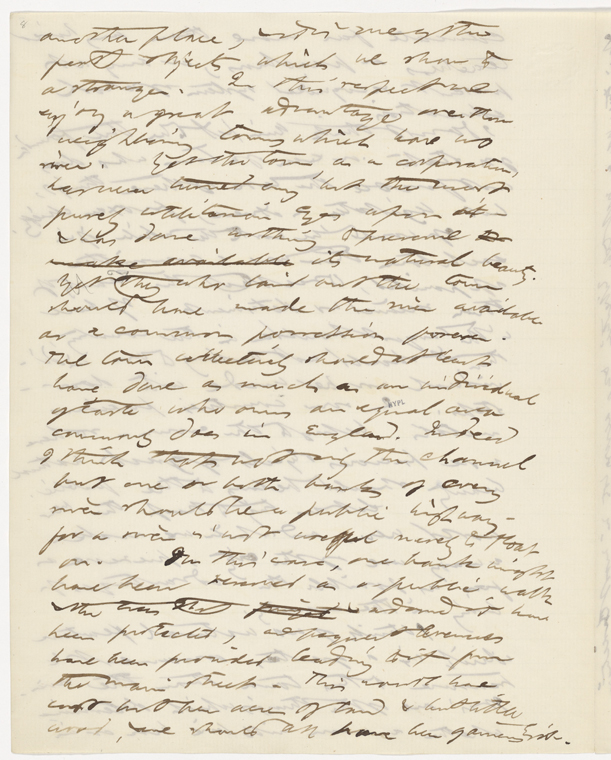 another place, & this is one of the
first objects which we show to
a stranger. In this respect we
enjoy a great advantage over those
neighboring towns which have no
river. Yet the town as a corporation,
has never turned any but the most
purely utilitarian eyes upon it—
& has done nothing to preserve
make available its natural beauty.
Yet They who laid out the town
should have made the river available
as a common possession forever.
The town collectively should at least
have done as much as an individual
of taste who owns an equal area
commonly does in England. Indeed
I think that not only the channel
but one or both banks of every
river should be a public highway—
for a river is not useful merely to float
on. In this case, one bank might
have been reserved as a public walk
& the trees that adorned it have
been protected, and frequent avenues
have been provided leading to it from
the main street. This would have
cost but few acres of land & but little
wood, & we should all have been gainers by it.
NYPL